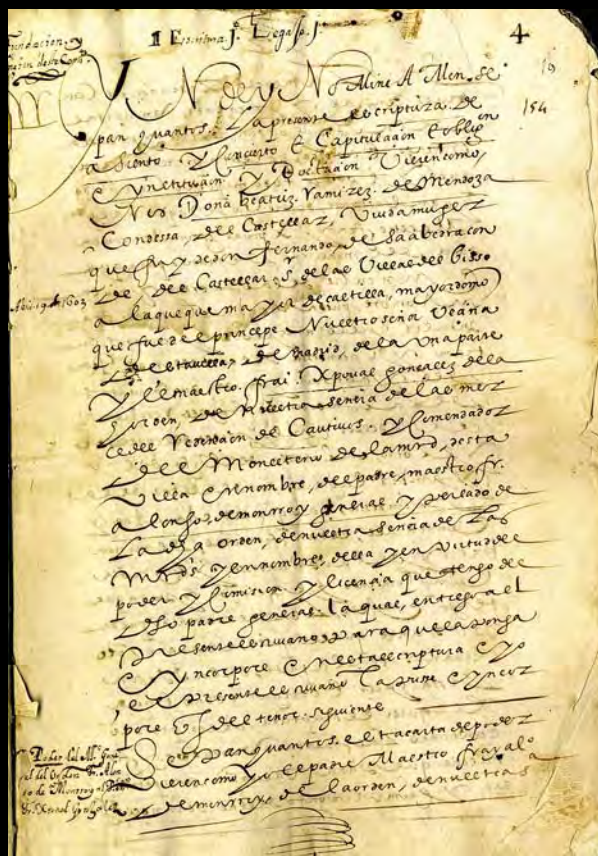 1 Escritura j. Legajo j.
4
Fundacion, y
desta Cor
N de y Nomine Amen. se
pan quantos. La presente escriptura. de
asiento. y Concierto E Capitulaçion E oblig
E ynstituçion y Dottaçion Vieren como,
Nos Doña beatriz Ramirez. de Mendoza
Condessa, del Castellar, Viuda muger
que fuy de don fernando, de Saabedra con
de, del Castellar, sr de las Villas del Visso
Abril 9. de 1603
que fue del principe Nuestro señor Veçina
desta uilla, de madrid, de la Una parte
y el maestro. frai. Xpoual gonçalez de la
horden, de Nuestra señora de las mer
çedes Redençion de Cautiuos. y Comendador
del Monesterio de la mrd, desta
Villa E en nombre, del padre, maestro fr.
alonso, de monrroy general y perlado de
La dha orden, de nuestra señora de Las
Mrds y en nombre, della y en Virtud del
poder y Comision. y liçençia que tengo del
dho padre general. la qual, entrego a el
presente escriuano para que la ponga
E yncorpore En esta escriptura E yo
el presente escriuano La puse E yncor
pore q es del tenor. siguiente
Poder del Mo. Gene
ral del Orden Fr. Alon
so de Monrroy al Pe
Fr. Xroual Gonzalez
Sepan quantos. esta carta de poder
Vieren como yo el padre Maestro fray alo
de monrroy, de la orden, de nuestra s